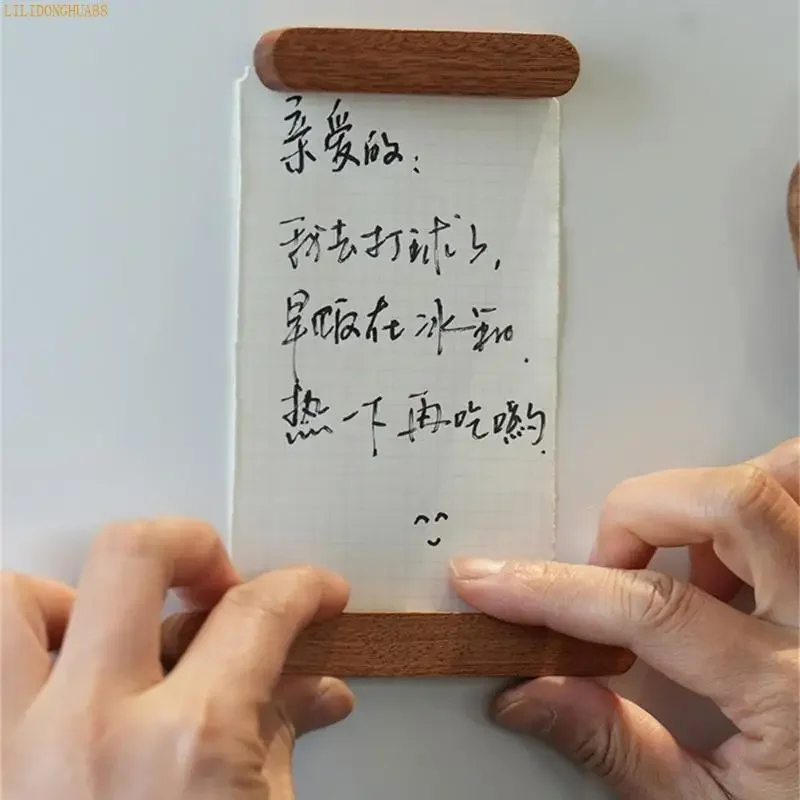 LILIDONGHUA88
亲爱的:
我去打球了,
早饭在冰箱.
热一下再吃哟.